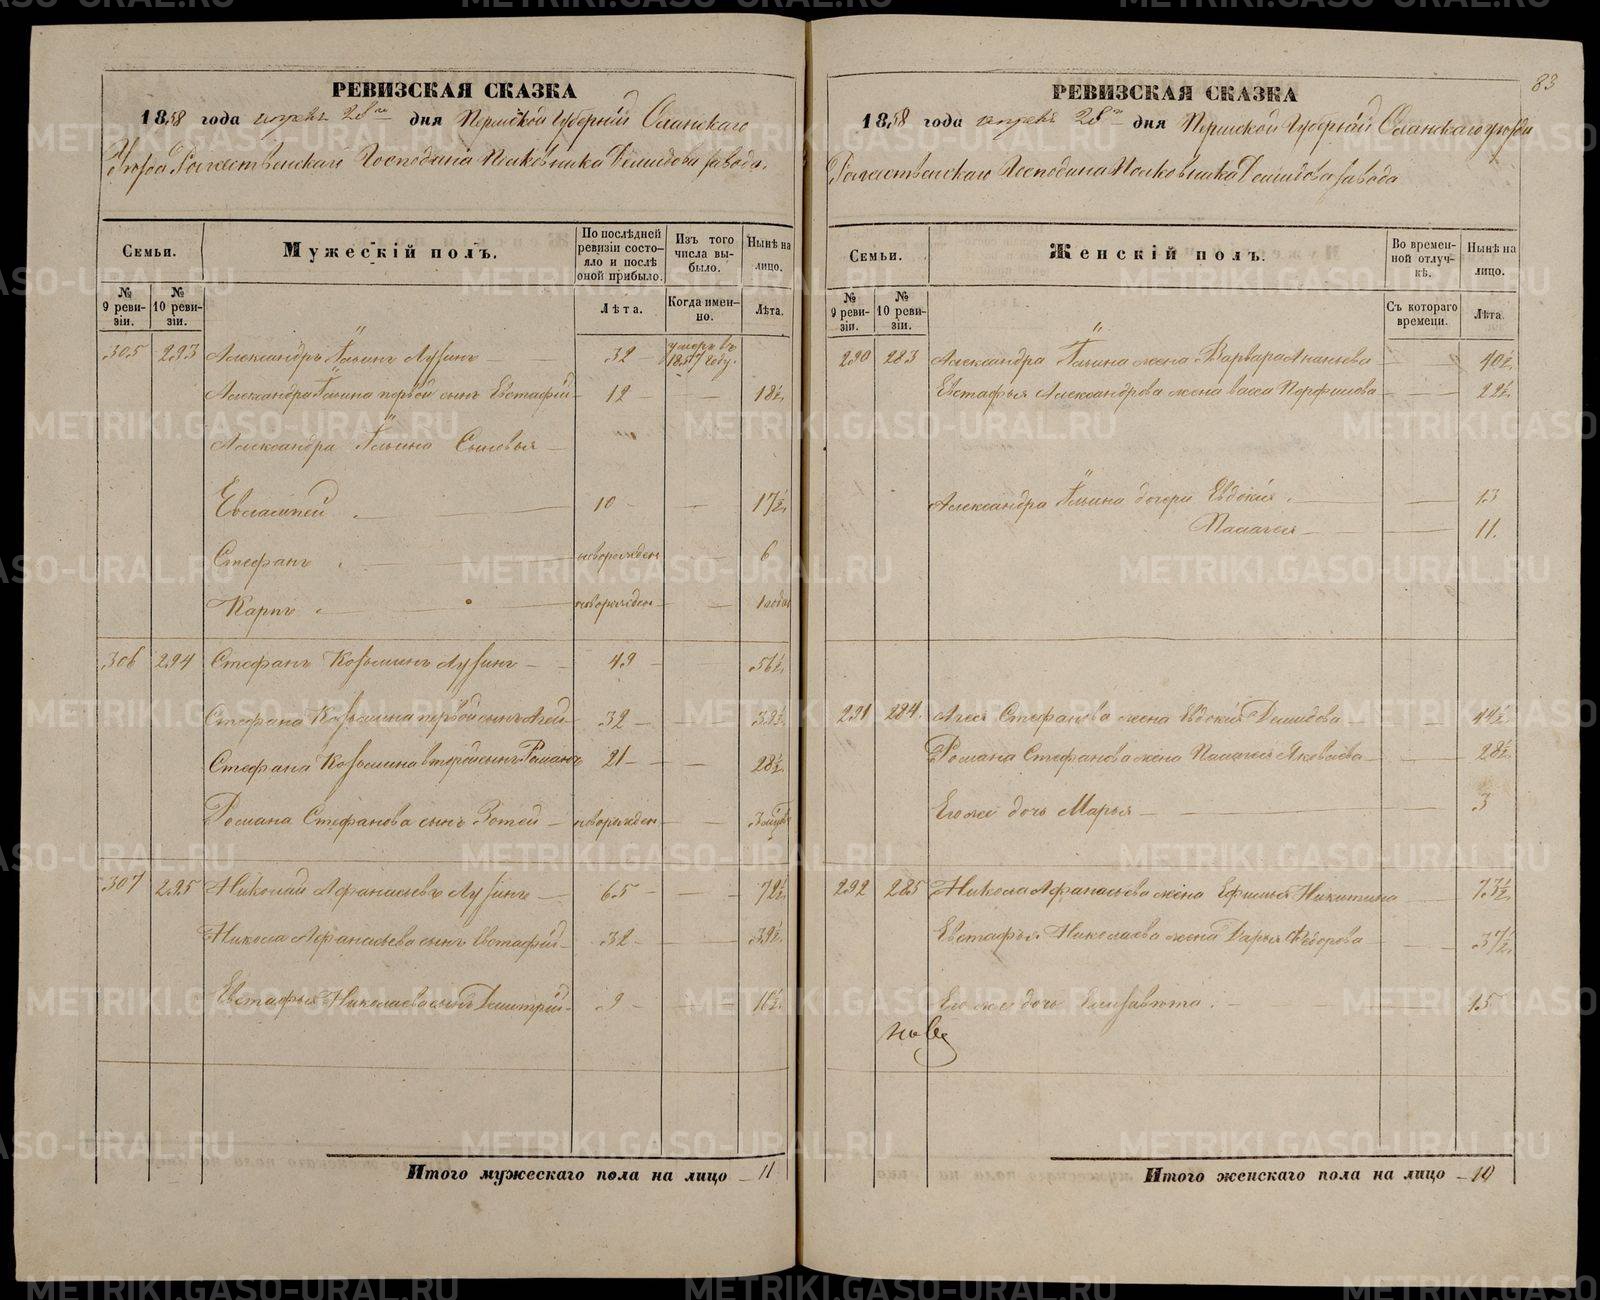 83
РЕВИЗСКАЯ СКАЗКА
1858 года апреля 28го дня Пермской Губернии Осинскаго
Уезда Рожественскаго Господина Полковника Демидова завода.
Семьи.
Мужескій полъ.
По послѣдней ревизіи состояло и послѣ оной прибыло.
Изъ того числа выбыло.
Нынѣ на лицо.
№ 9 ревизіи.
№ 10 ревизіи.
Лѣта.
Когда именно.
Лѣта.
305 293 Александръ Ильинъ Лузинъ 32 умеръ въ 1857 году.
Александра Ильина первой сынъ Евстафій 12 18½
Александра Ильина Сыновья
Евлампей 10 17½
Стефанъ новорожден 6
Карпъ новорожден 1 годъ
306 294 Стефанъ Козьминъ Лузинъ 49 56½
Стефана Козьмина первой сынъ Агей 32 39½
Стефана Козьмина второй сынъ Романъ 21 28½
Романа Стефанова сынъ Зотей новорожден 3
307 295 Николай Афанасьевъ Лузинъ 65 72½
Никола Афанасьева сынъ Евстафій 32 39½
Евстафья Николаева сынъ Дмитрій 9 16½
Итого мужескаго пола на лицо 11
РЕВИЗСКАЯ СКАЗКА
1858 года апреля 28го дня Пермской Губернии Осинскаго уезда
Рожественскаго Господина Полковника Демидова завода
Семьи.
Женскій полъ.
Во временной отлучкѣ.
Нынѣ на лицо.
№ 9 ревизіи.
№ 10 ревизіи.
Съ котораго времеци.
Лѣта.
290 283 Александра Ильина жена Варвара Ананьева 40½
Евстафья Александрова жена Васса Порфилова 22½
Александра Ильина дочери Евдокия 13
Палагея 11.
291 284. Агея Стефанова жена Евдокия Демидова 44½
Романа Стефанова жена Палагея Яковлева 28½
Его же дочь Марья 3
292 285 Никола Афанасьева жена Ефимья Никитина 73½
Евстафья Николаева жена Дарья Федорова 37½
Его же дочь Елизавета 15
Итого женскаго пола на лицо 10
METRIKI.GASO-URAL.RU